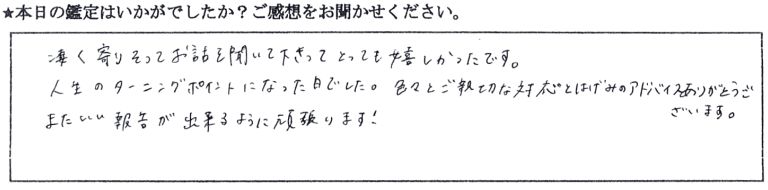 ★本日の鑑定はいかがでしたか？ご感想をお聞かせください。
凄く寄りそってお話を聞いて下さってとっても嬉しかったです。
人生のターニングポイントになった日でした。色々とご親切な対応とはげみのアドバイスありがとうございます。
またいい報告が出来るように頑張ります!